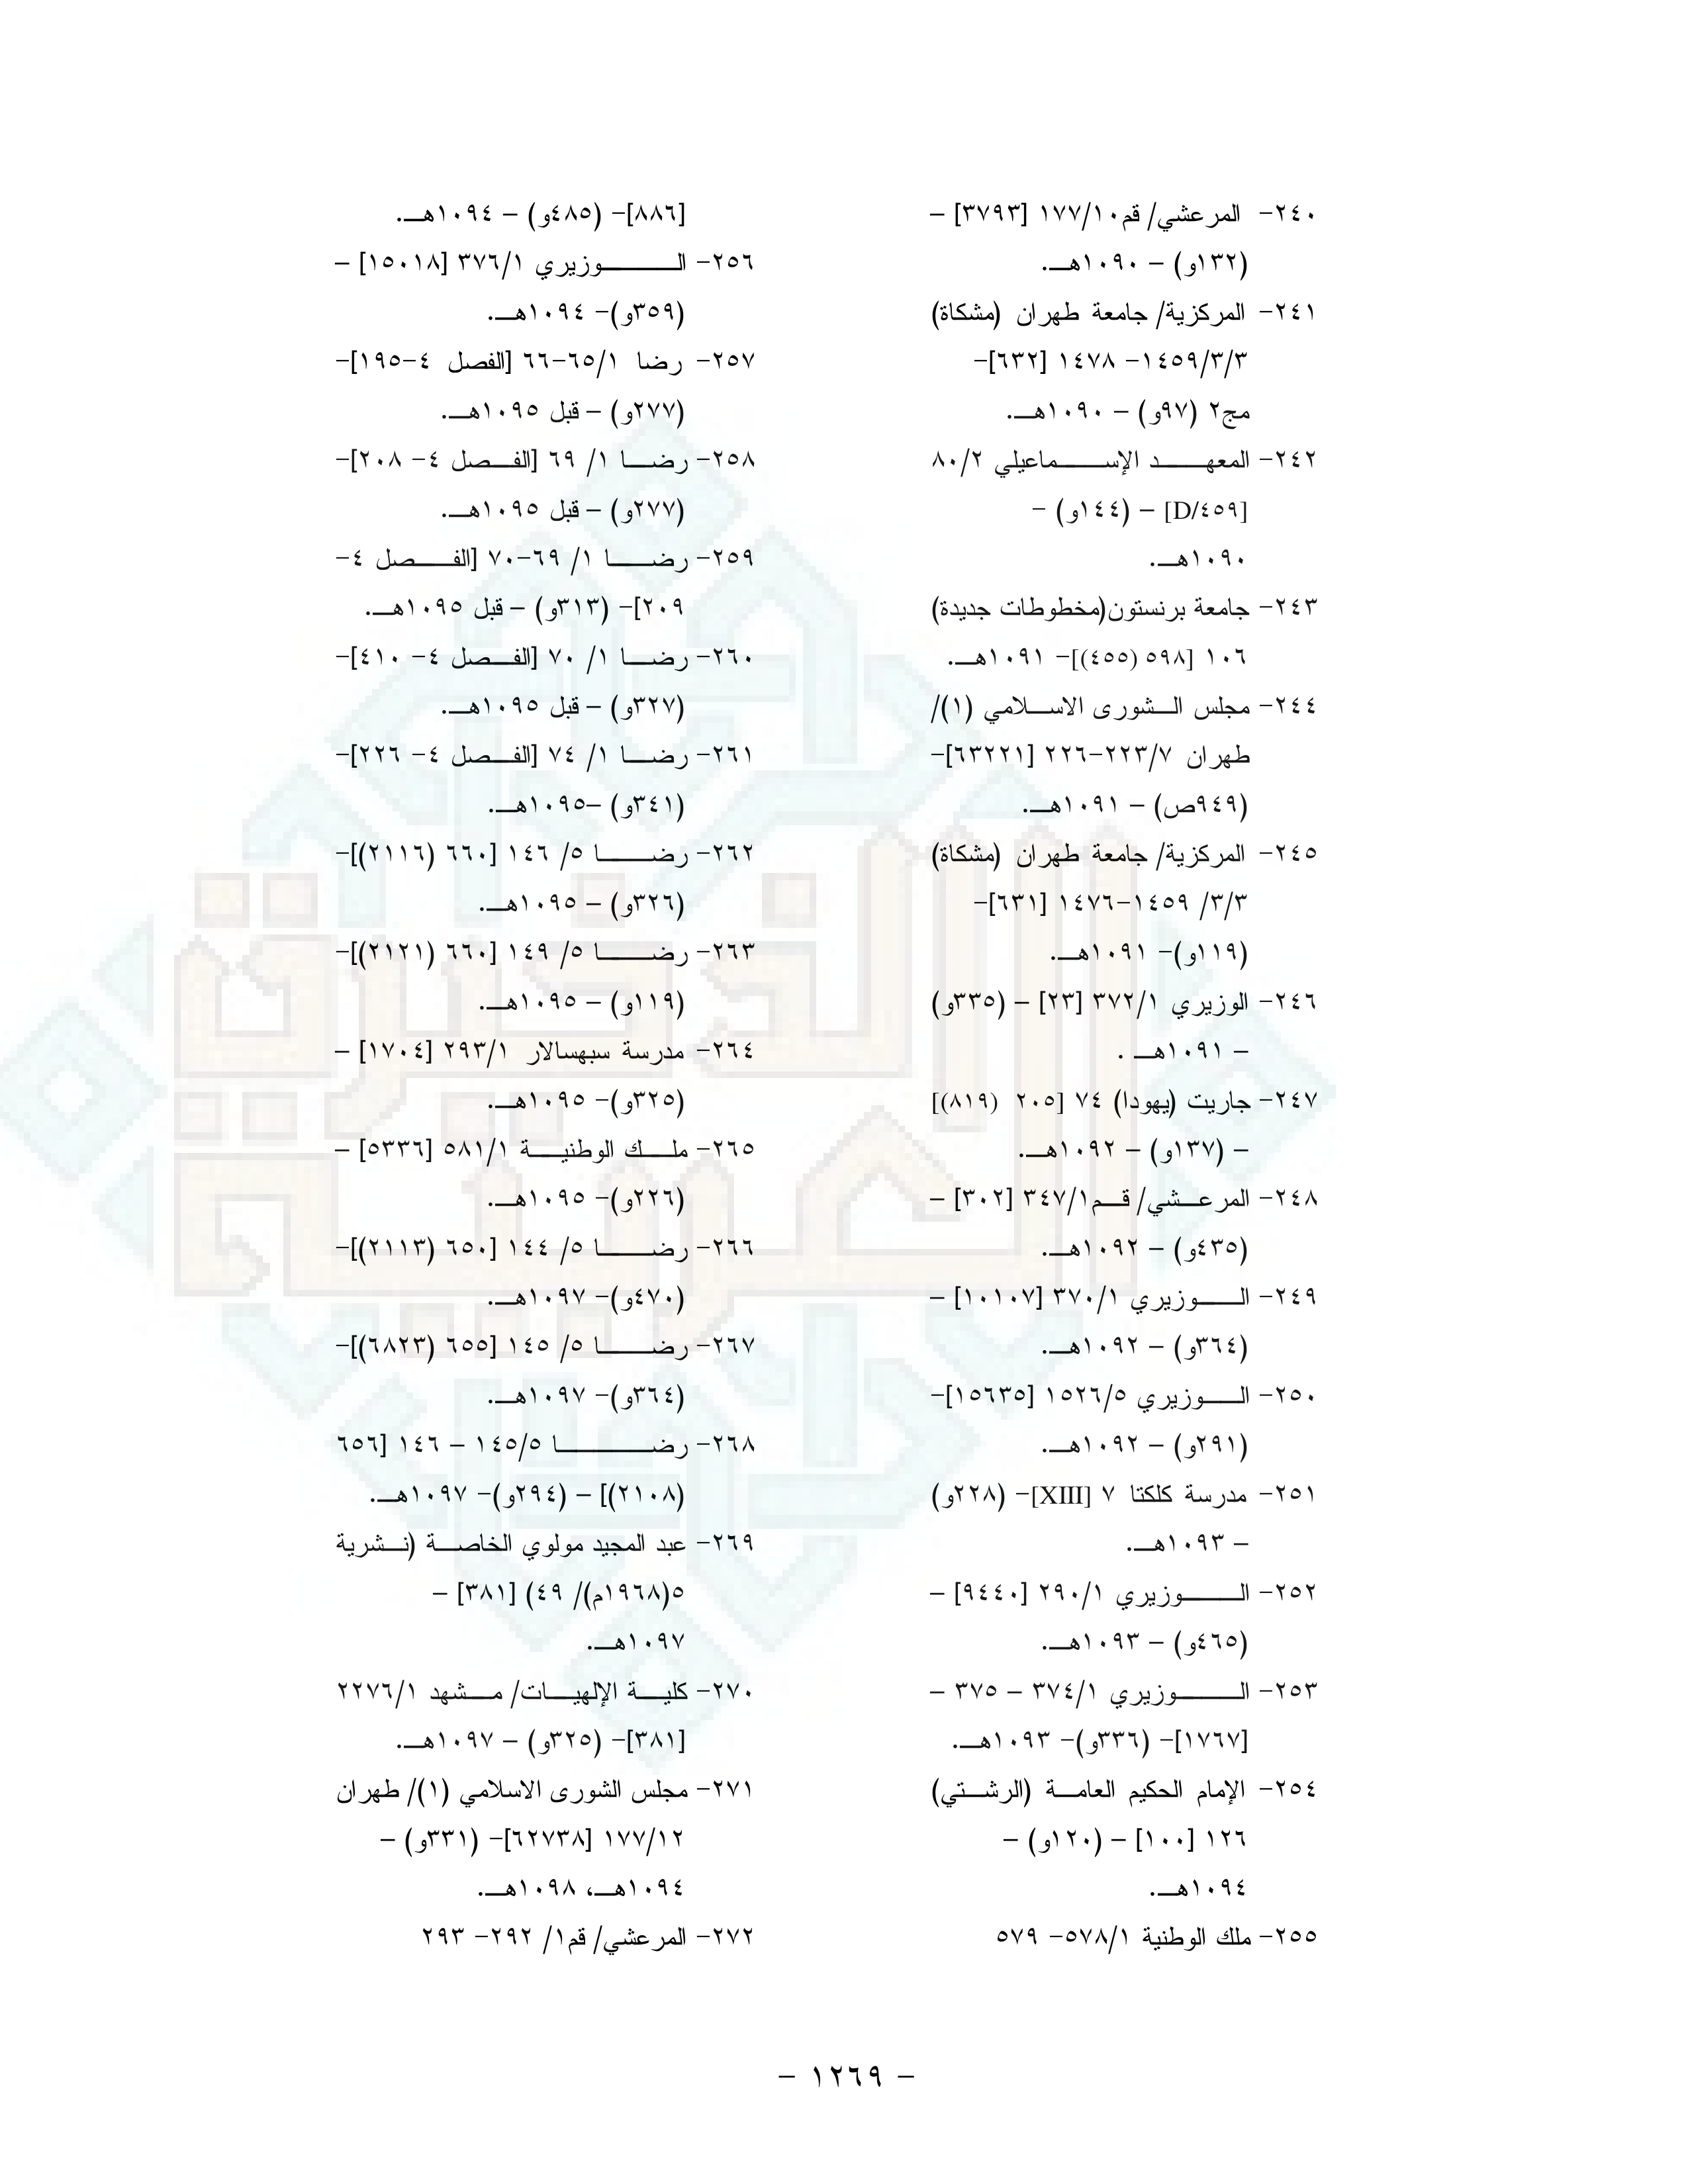 ٢٤٠- المرعشي/ قم١٠/١٧٧ [٣٧٩٣] –
(١٣٢و) – ١٠٩٠هـ.
٢٤١- المركزية/ جامعة طهران (مشكاة)
٣/٣/١٤٥٩- ١٤٧٨ [٦٣٢]-
مج٢ (٩٧و) – ١٠٩٠هـ.
٢٤٢- المعهد الإسماعيلي ٨٠/٢
[D/٤٥٩] – (١٤٤و) -
١٠٩٠هـ.
٢٤٣- جامعة برنستون(مخطوطات جديدة)
١٠٦ [٥٩٨ (٤٥٥)]- ١٠٩١هـ.
٢٤٤- مجلس الشورى الاسلامي (١)/
طهران ٢٢٣/٧-٢٢٦ [٦٣٢٢١]-
(٩٤٩ص) – ١٠٩١هـ.
٢٤٥- المركزية/ جامعة طهران (مشكاة)
٣/٣/ ١٤٥٩-١٤٧٦ [٦٣١]-
(١١٩و)- ١٠٩١هـ.
٢٤٦- الوزيري ٣٧٢/١ [٢٣] – (٣٣٥و)
– ١٠٩١هـ .
٢٤٧- جاريت (يهودا) ٧٤ [٢٠٥ (٨١٩)]
– (١٣٧و) – ١٠٩٢هـ.
٢٤٨- المرعشي/ قم٣٤٧/١ [٣٠٢] –
(٤٣٥و) – ١٠٩٢هـ.
٢٤٩- الوزيري ٣٧٠/١ [١٠١٠٧] –
(٣٦٤و) – ١٠٩٢هـ.
٢٥٠- الوزيري ١٥٢٦/٥ [١٥٦٣٥]-
(٢٩١و) – ١٠٩٢هـ.
٢٥١- مدرسة كلكتا ٧ [XIII]- (٢٢٨و)
– ١٠٩٣هـ.
٢٥٢- الوزيري ٢٩٠/١ [٩٤٤٠] –
(٤٦٥و) – ١٠٩٣هـ.
٢٥٣- الوزيري ٣٧٤/١ – ٣٧٥ –
[١٧٦٧]- (٣٣٦و)- ١٠٩٣هـ.
٢٥٤- الإمام الحكيم العامة (الرشتي)
١٢٦ [١٠٠] – (١٢٠و) –
١٠٩٤هـ.
٢٥٥- ملك الوطنية ٥٧٨/١- ٥٧٩
[٨٨٦]- (٤٨٥و) – ١٠٩٤هـ.
٢٥٦- الوزيري ٣٧٦/١ [١٥٠١٨] –
(٣٥٩و)- ١٠٩٤هـ.
٢٥٧- رضا ٦٥/١-٦٦ [الفصل ٤-١٩٥]-
(٢٧٧و) – قبل ١٠٩٥هـ.
٢٥٨- رضا ١/ ٦٩ [الفصل ٤- ٢٠٨]-
(٢٧٧و) – قبل ١٠٩٥هـ.
٢٥٩- رضا ١/ ٦٩-٧٠ [الفصل ٤-
٢٠٩]- (٣١٣و) – قبل ١٠٩٥هـ.
٢٦٠- رضا ١/ ٧٠ [الفصل ٤- ٤١٠]-
(٣٢٧و) – قبل ١٠٩٥هـ.
٢٦١- رضا ١/ ٧٤ [الفصل ٤- ٢٢٦]-
(٣٤١و) –١٠٩٥هـ.
٢٦٢- رضا ٥/ ١٤٦ [٦٦٠ (٢١١٦)]-
(٣٢٦و) – ١٠٩٥هـ.
٢٦٣- رضا ٥/ ١٤٩ [٦٦٠ (٢١٢١)]-
(١١٩و) – ١٠٩٥هـ.
٢٦٤- مدرسة سبهسالار ٢٩٣/١ [١٧٠٤] –
(٣٢٥و)- ١٠٩٥هـ.
٢٦٥- ملك الوطنية ٥٨١/١ [٥٣٣٦] –
(٢٢٦و)- ١٠٩٥هـ.
٢٦٦- رضا ٥/ ١٤٤ [٦٥٠ (٢١١٣)]-
(٤٧٠و)- ١٠٩٧هـ.
٢٦٧- رضا ٥/ ١٤٥ [٦٥٥ (٦٨٢٣)]-
(٣٦٤و)- ١٠٩٧هـ.
٢٦٨- رضا ١٤٥/٥ – ١٤٦ [٦٥٦
(٢١٠٨)] – (٢٩٤و)- ١٠٩٧هـ.
٢٦٩- عبد المجيد مولوي الخاصة (نشرية
٥(١٩٦٨م)/ ٤٩) [٣٨١] –
١٠٩٧هـ.
٢٧٠- كلية الإلهيات/ مشهد ٢٢٧٦/١
[٣٨١]- (٣٢٥و) – ١٠٩٧هـ.
٢٧١- مجلس الشورى الاسلامي (١)/ طهران
١٧٧/١٢ [٦٢٧٣٨]- (٣٣١و) –
١٠٩٤هـ، ١٠٩٨هـ.
٢٧٢- المرعشي/ قم١/ ٢٩٢- ٢٩٣
– ١٢٦٩ –
الذخيرة
العربية